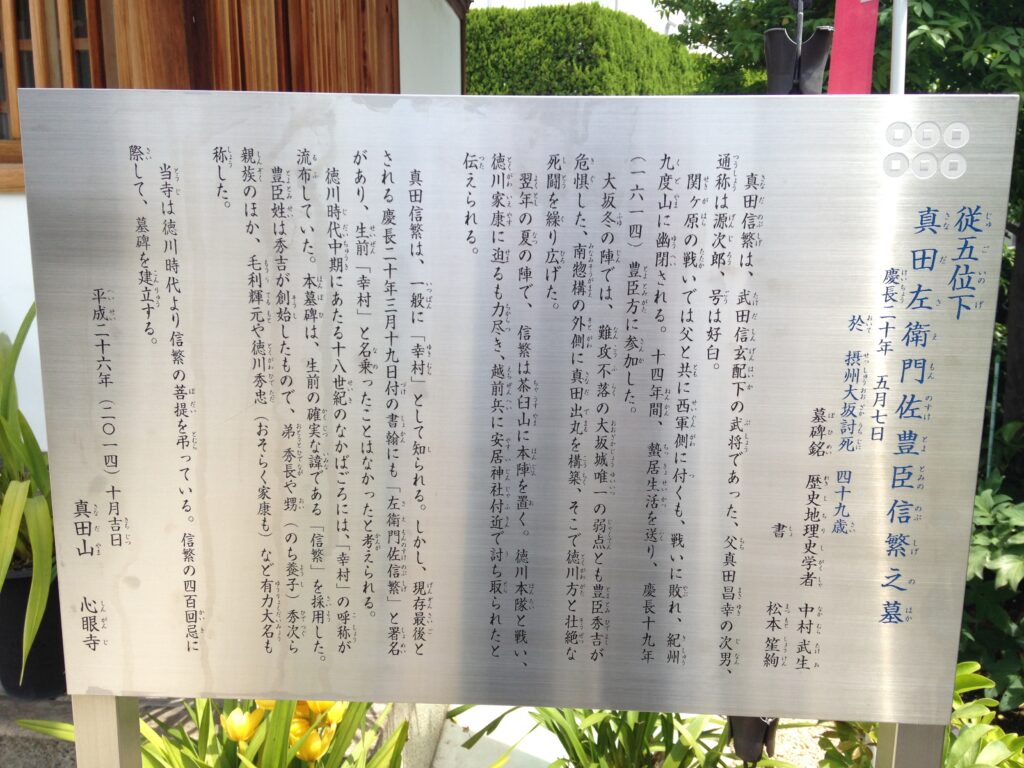 従五位下
真田左衛門佐豊臣信繁之墓
慶長二十年 五月七日
於 摂州大坂討死 四十九歳
墓碑銘 歴史地理史学者 中村武生
書 松本笙絢
真田信繁は、武田信玄配下の武将であった、父真田昌幸の次男、
通称は源次郎、号は好白。
関ヶ原の戦いでは父と共に西軍側に付くも、戦いに敗れ、紀州
九度山に幽閉される。十四年間、蟄居生活を送り、慶長十九年
(一六一四)豊臣方に参加した。
大坂冬の陣では、難攻不落の大坂城唯一の弱点とも豊臣秀吉が
危惧した、南惣構の外側に真田出丸を構築、そこで徳川方と壮絶な
死闘を繰り広げた。
翌年の夏の陣で、信繁は茶臼山に本陣を置く。徳川本隊と戦い、
徳川家康に迫るも力尽き、越前兵に安居神社付近で討ち取られたと
伝えられる。
真田信繁は、一般に「幸村」として知られる。しかし、現存最後と
される慶長二十年三月十九日付の書翰にも「左衛門佐信繁」と署名
があり、生前「幸村」と名乗ったことはなかったと考えられる。
徳川時代中期にあたる十八世紀のなかばごろには、「幸村」の呼称が
流布していた。本墓碑は、生前の確実な諱である「信繁」を採用した。
豊臣姓は秀吉が創始したもので、弟秀長や甥(のち養子)秀次ら
親族のほか、毛利輝元や徳川秀忠(おそらく家康も)など有力大名も
称した。
当寺は徳川時代より信繁の菩提を弔っている。信繁の四百回忌に
際して、墓碑を建立する。
平成二十六年(二〇一四)十月吉日
真田山 心眼寺